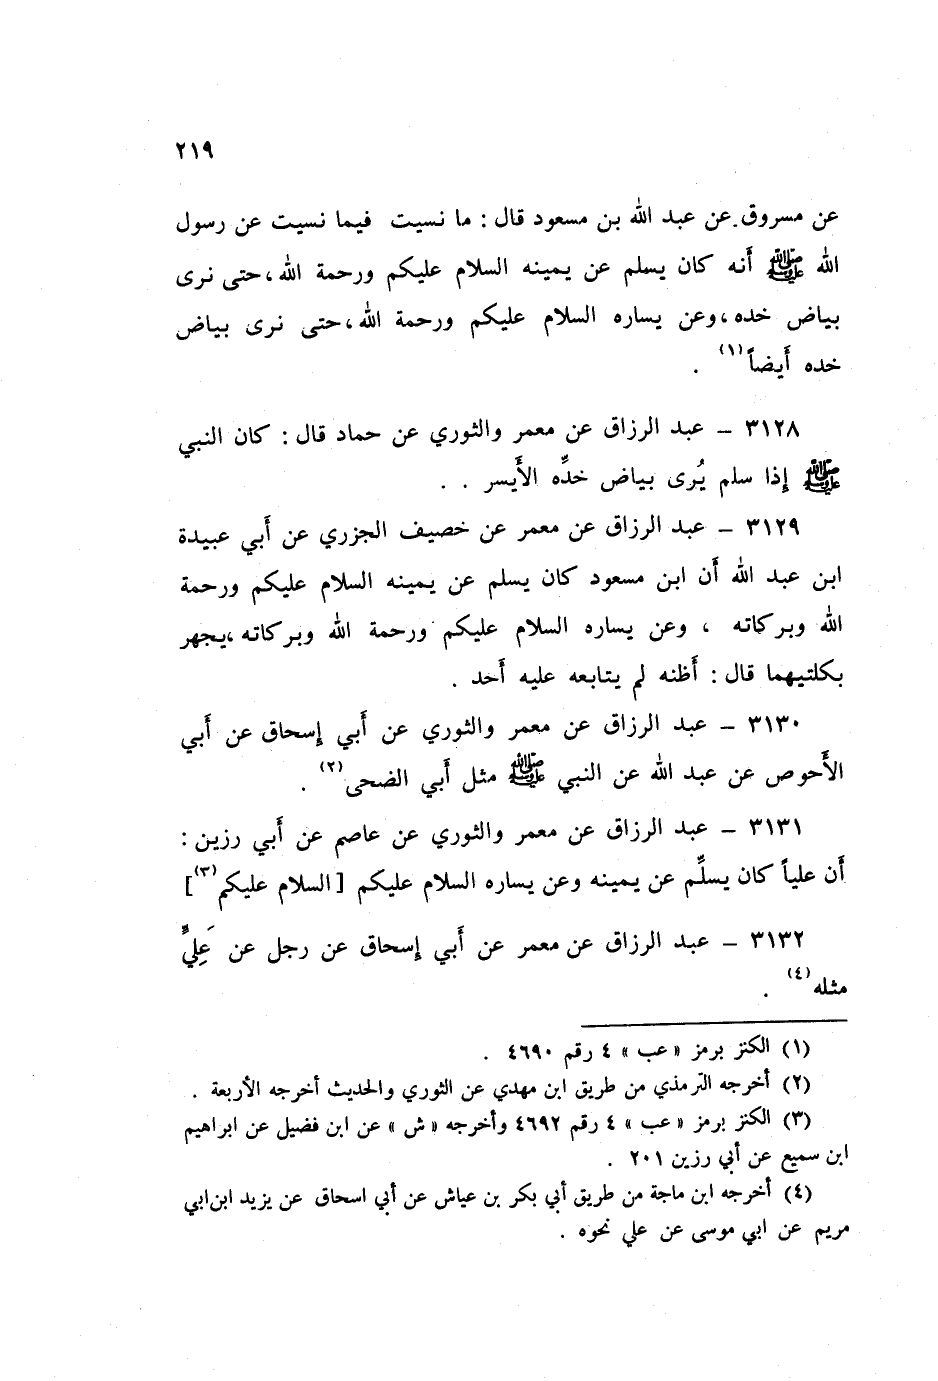 ٢١٩
عن مسروق عن عبد الله بن مسعود قال : ما نسيت فيما نسيت عن رسول
الله ﷺ أنه كان يسلم عن يمينه السلام عليكم ورحمة الله ،حتى نرى
بياض خده ،وعن يساره السلام عليكم ورحمة الله ،حتى نرى بياض
خده أيضاً(١) .
٣١٢٨ – عبد الرزاق عن معمر والثوري عن حماد قال : كان النبي
ﷺ إذا سلم يُرى بياض خدِّه الأيسر . .
٣١٢٩ – عبد الرزاق عن معمر عن خصيف الجزري عن أبي عبيدة
ابن عبد الله أن ابن مسعود كان يسلم عن يمينه السلام عليكم ورحمة
الله وبركاته ، وعن يساره السلام عليكم ورحمة الله وبركاته ،يجهر
بكلتيهما قال : أظنه لم يتابعه عليه أحد .
٣١٣٠ – عبد الرزاق عن معمر والثوري عن أبي إسحاق عن أبي
الأحوص عن عبد الله عن النبي ﷺ مثل أبي الضحى(٢) .
٣١٣١ – عبد الرزاق عن معمر والثوري عن عاصم عن أبي رزين :
أن علياً كان يسلِّم عن يمينه وعن يساره السلام عليكم [السلام عليكم(٣)]
٣١٣٢ – عبد الرزاق عن معمر عن أبي إسحاق عن رجل عن عَلِيٍّ
مثله(٤) .
(١) الكنز برمز «عب» ٤ رقم ٤٦٩٠ .
(٢) أخرجه الترمذي من طريق ابن مهدي عن الثوري والحديث أخرجه الأربعة .
(٣) الكنز برمز «عب» ٤ رقم ٤٦٩٢ وأخرجه «ش» عن ابن فضيل عن ابراهيم
ابن سميع عن أبي رزين ٢٠١ .
(٤) أخرجه ابن ماجة من طريق أبي بكر بن عياش عن أبي اسحاق عن يزيد ابن ابي
مريم عن ابي موسى عن علي نحوه .